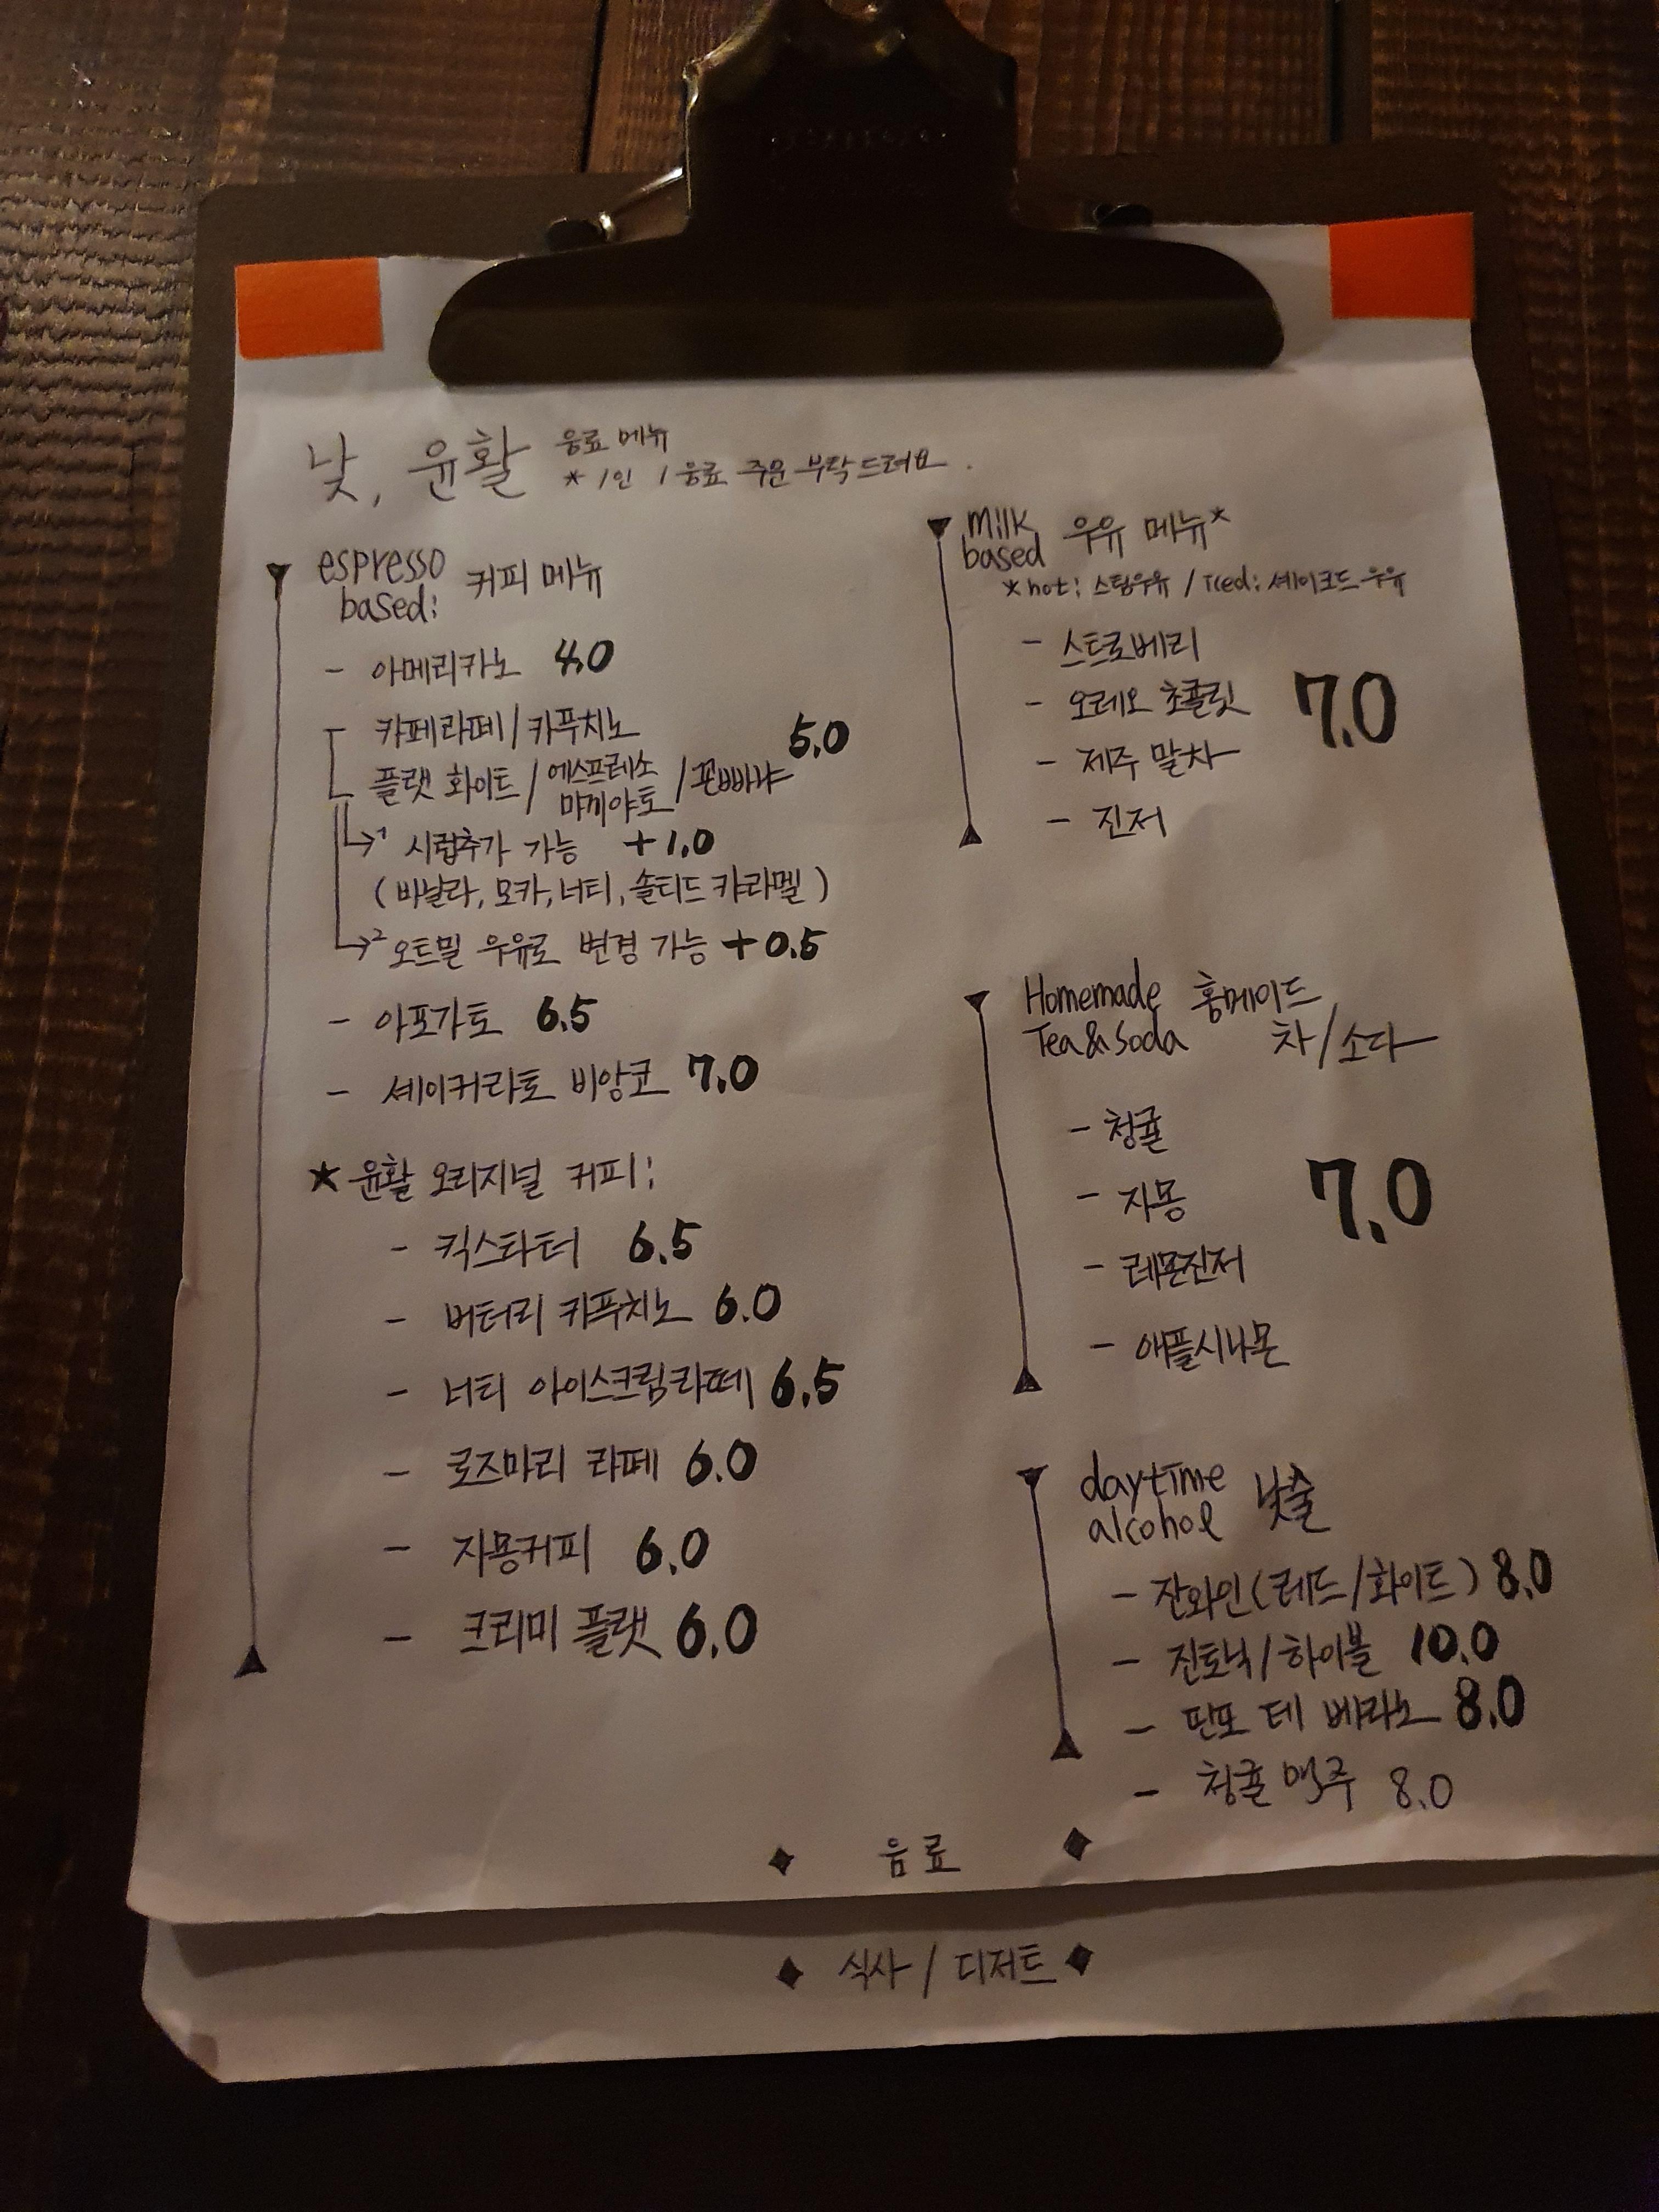 낮, 윤활 음료 메뉴
* 1인 1음료 주문 부탁드려요.
espresso based: 커피 메뉴
- 아메리카노 4.0
- 카페라떼/카푸치노
플랫 화이트/에스프레소 마끼야또/꼰빠냐 5.0
→1 시럽추가 가능 +1.0
(바닐라, 모카, 너티, 솔티드 캬라멜)
→2 오트밀 우유로 변경 가능 +0.5
- 아포가토 6.5
- 셰이커라또 비앙코 7.0
★ 윤활 오리지널 커피:
- 킥스타터 6.5
- 버터리 카푸치노 6.0
- 너티 아이스크림라떼 6.5
- 로즈마리 라떼 6.0
- 자몽커피 6.0
- 크리미 플랫 6.0
milk based 우유 메뉴*
*hot: 스팀우유 / iced: 셰이크드 우유
- 스트로베리
- 오레오 초콜릿
7.0
- 제주 말차
- 진저
Homemade 홍메이드
Tea & Soda 차/소다
- 청귤
- 자몽
7.0
- 레몬진저
- 애플시나몬
daytime alcohol 낮술
- 잔와인(레드/화이트) 8.0
- 진토닉/하이볼 10.0
- 띤또 데 베라노 8.0
- 청귤 맥주 8.0
◆ 음료 ◆
◆ 식사 / 디저트 ◆